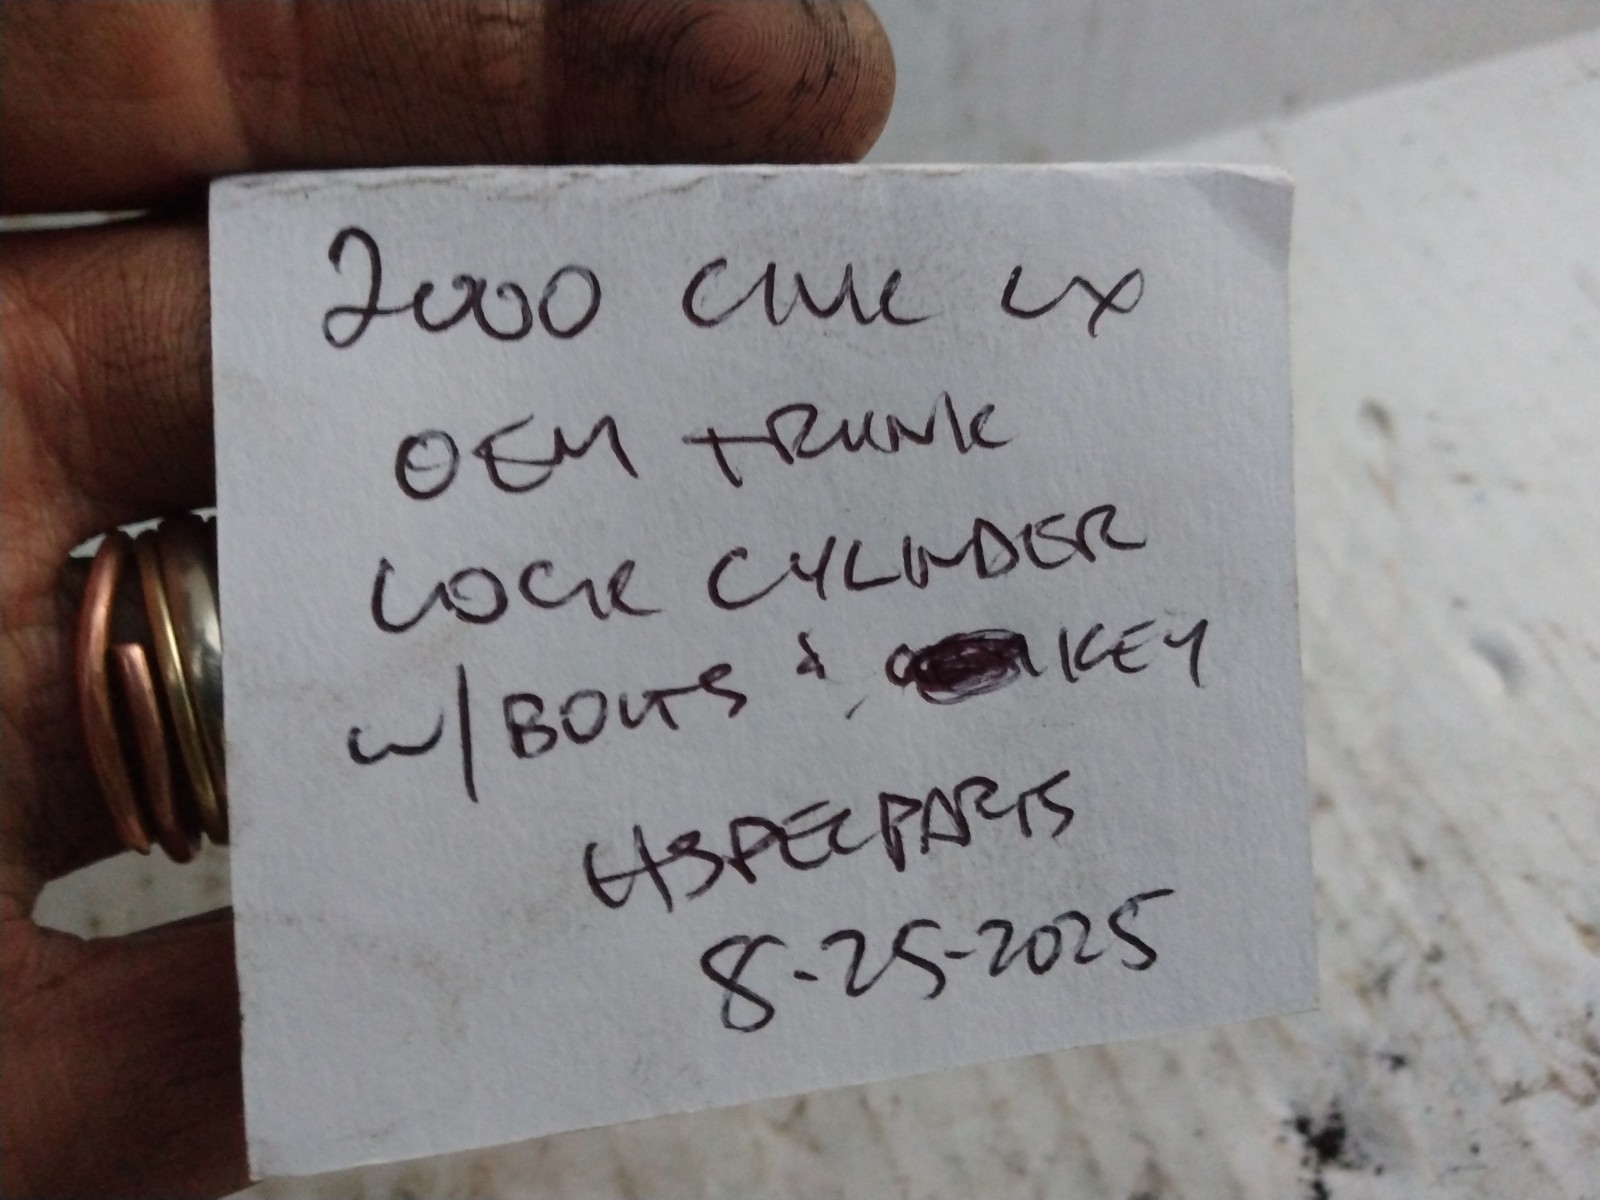 2000 CIVIC LX
OEM TRUNK
LOCK CYLINDER
W/BOLTS & KEY
HSPECPARTS
8-25-2025